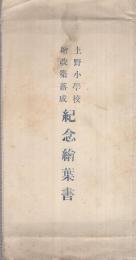 上野小學校
増改築落成
紀念繪葉書